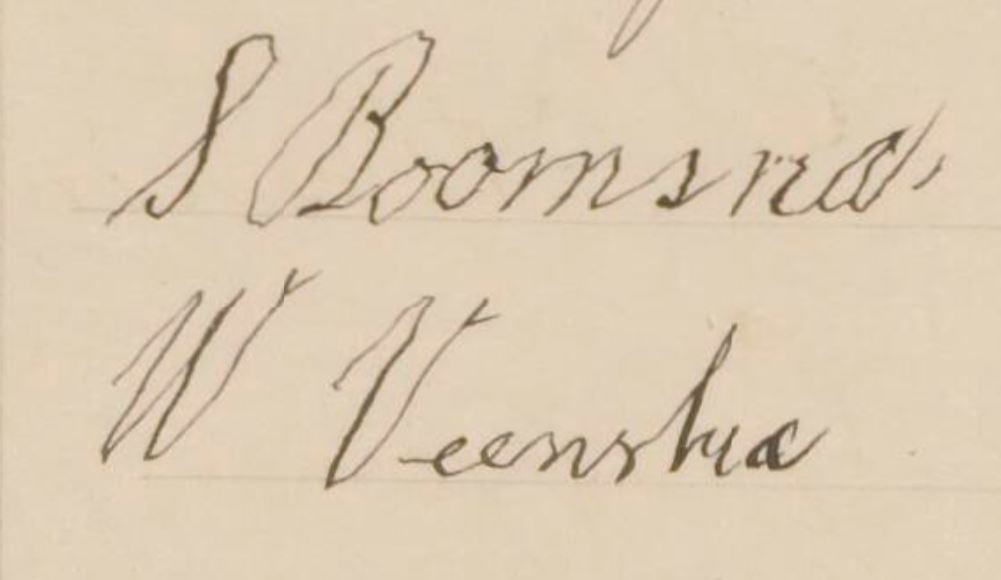 S Boomsma
W Veenstra